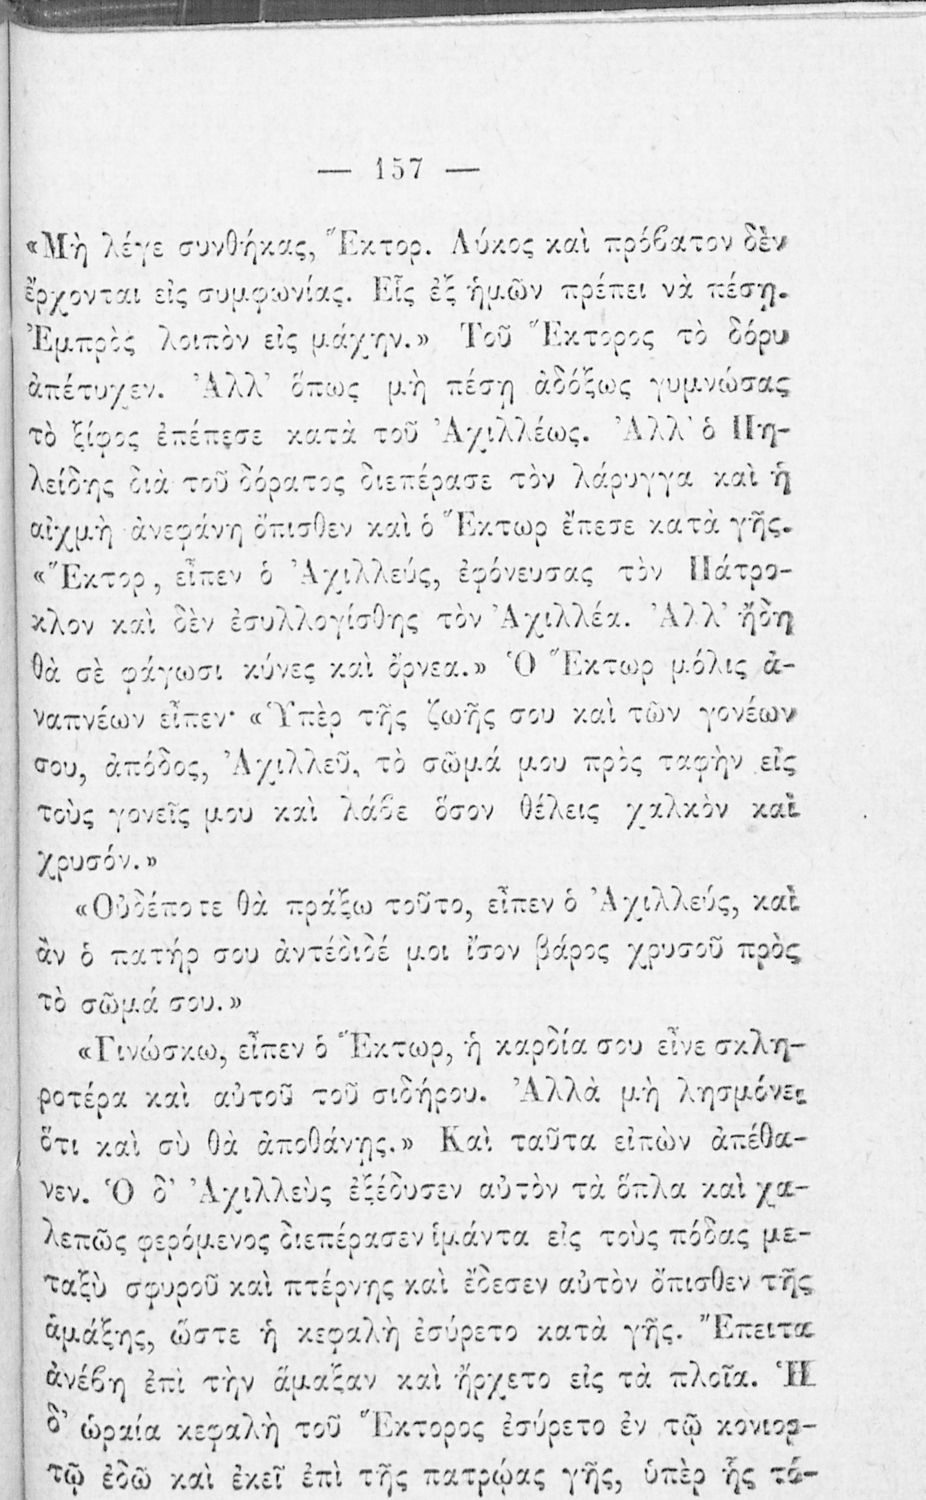 — 157 —
«Μὴ λέγε συνθήκας, Ἕκτορ. Λύκος καὶ πρόβατον δὲν
ἔρχονται εἰς συμφωνίας. Εἷς ἐξ ἡμῶν πρέπει νὰ πέσῃ.
Ἐμπρὸς λοιπὸν εἰς μάχην.» Τοῦ Ἕκτορος τὸ δόρυ
ἀπέτυχεν. Ἀλλ' ὅπως μὴ πέσῃ ἀδόξως γυμνώσας
τὸ ξίφος ἐπέπεσε κατὰ τοῦ Ἀχιλλέως. Ἀλλ' ὁ Πη-
λείδης διὰ τοῦ δόρατος διεπέρασε τὸν λάρυγγα καὶ ἡ
αἰχμὴ ἀνεφάνη ὄπισθεν καὶ ὁ Ἕκτωρ ἔπεσε κατὰ γῆς.
«Ἕκτορ, εἶπεν ὁ Ἀχιλλεύς, ἐφόνευσας τὸν Πάτρο-
κλον καὶ δὲν ἐσυλλογίσθης τὸν Ἀχιλλέα. Ἀλλ' ἤδη
θὰ σὲ φάγωσι κύνες καὶ ὄρνεα.» Ὁ Ἕκτωρ μόλις ἀ-
ναπνέων εἶπεν· «Ὑπὲρ τῆς ζωῆς σου καὶ τῶν γονέων
σου, ἀπόδος, Ἀχιλλεῦ, τὸ σῶμά μου πρὸς ταφὴν εἰς
τοὺς γονεῖς μου καὶ λάβε ὅσον θέλεις χαλκὸν καὶ
χρυσόν.»
«Οὐδέποτε θὰ πράξω τοῦτο, εἶπεν ὁ Ἀχιλλεύς, καὶ
ἂν ὁ πατήρ σου ἀντέδιδέ μοι ἴσον βάρος χρυσοῦ πρὸς
τὸ σῶμά σου.»
«Γινώσκω, εἶπεν ὁ Ἕκτωρ, ἡ καρδία σου εἶνε σκλη-
ροτέρα καὶ αὐτοῦ τοῦ σιδήρου. Ἀλλὰ μὴ λησμόνει
ὅτι καὶ σὺ θὰ ἀποθάνῃς.» Καὶ ταῦτα εἰπὼν ἀπέθα-
νεν. Ὁ δ' Ἀχιλλεὺς ἐξέδυσεν αὐτὸν τὰ ὅπλα καὶ χα-
λεπῶς φερόμενος διεπέρασεν ἱμάντα εἰς τοὺς πόδας με-
ταξὺ σφυροῦ καὶ πτέρνης καὶ ἔδεσεν αὐτὸν ὄπισθεν τῆς
ἁμάξης, ὥστε ἡ κεφαλὴ ἐσύρετο κατὰ γῆς. Ἔπειτα
ἀνέβη ἐπὶ τὴν ἅμαξαν καὶ ἤρχετο εἰς τὰ πλοῖα. Ἡ
δ' ὡραία κεφαλὴ τοῦ Ἕκτορος ἐσύρετο ἐν τῷ κονιορ-
τῷ ἐδῶ καὶ ἐκεῖ ἐπὶ τῆς πατρῴας γῆς, ὑπὲρ ἧς τό-